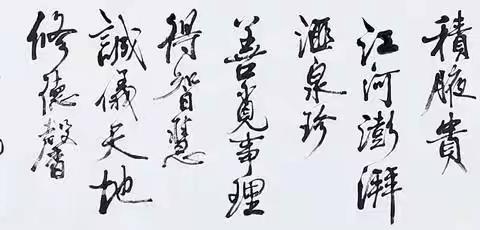 積腋貴
江河澎湃
滙泉珍
善覓事理
得智慧
誠儀天地
修德馨